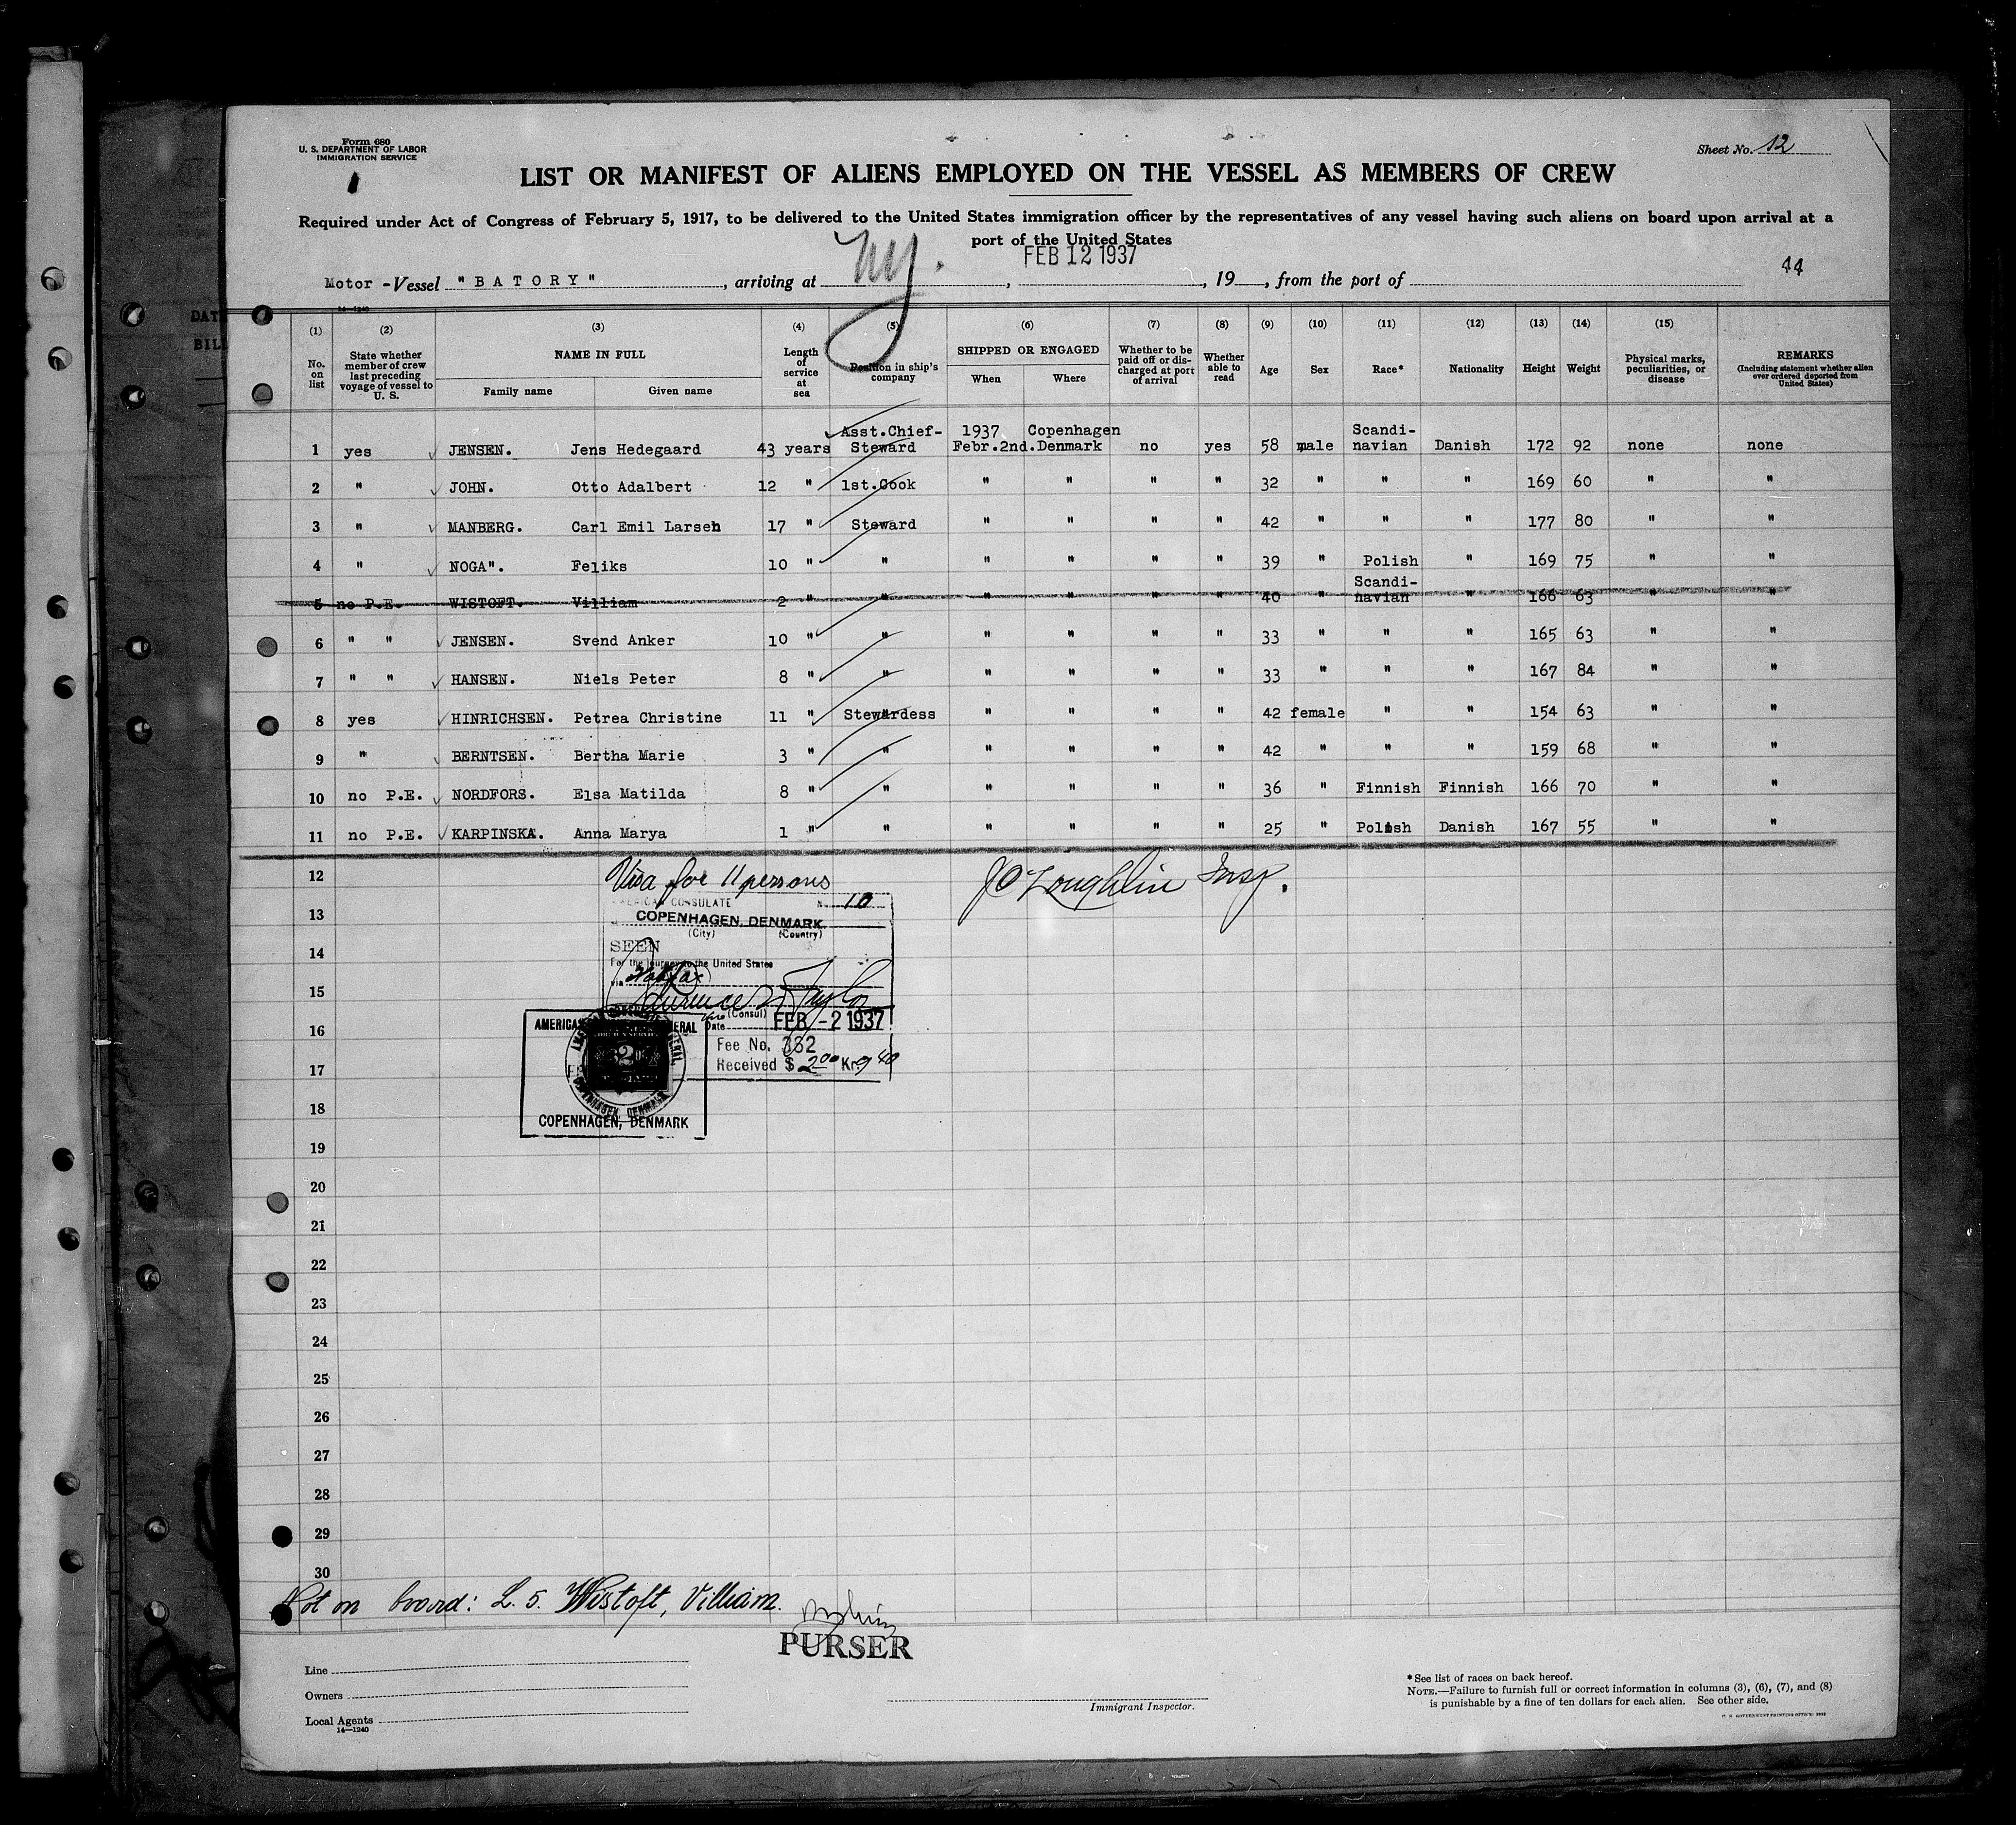 Form 680
U. S. DEPARTMENT OF LABOR
IMMIGRATION SERVICE
Sheet No. 12
LIST OR MANIFEST OF ALIENS EMPLOYED ON THE VESSEL AS MEMBERS OF CREW
Required under Act of Congress of February 5, 1917, to be delivered to the United States immigration officer by the representatives of any vessel having such aliens on board upon arrival at a
port of the United States
FEB 12 1937
44
Motor -Vessel "BATORY", arriving at Ny., 19, from the port of
14—1240
(1) (2) (3) (4) (5) (6) (7) (8) (9) (10) (11) (12) (13) (14) (15)
No. on list
State whether member of crew last preceding voyage of vessel to U. S.
NAME IN FULL
Family name Given name
Length of service at sea
Position in ship's company
SHIPPED OR ENGAGED
When Where
Whether to be paid off or discharged at port of arrival
Whether able to read
Age Sex Race* Nationality Height Weight
Physical marks, peculiarities, or disease
REMARKS
(Including statement whether alien ever ordered deported from United States)
Asst.Chief- 1937 Copenhagen Scandi-
1 yes JENSEN. Jens Hedegaard 43 years Steward Febr.2nd. Denmark no yes 58 male navian Danish 172 92 none none
2 " JOHN. Otto Adalbert 12 " 1st.Cook " " " " 32 " " " 169 60 " "
3 " MANBERG. Carl Emil Larsen 17 " Steward " " " " 42 " " " 177 80 " "
4 " NOGA". Feliks 10 " " " " " " 39 " Polish " 169 75 " "
Scandi-
5 no P.E. WISTOFT. Villiam 2 " " " " " " 40 " navian " 166 63 " "
6 " " JENSEN. Svend Anker 10 " " " " " " 33 " " " 165 63 " "
7 " " HANSEN. Niels Peter 8 " " " " " " 33 " " " 167 84 " "
8 yes HINRICHSEN. Petrea Christine 11 " Stewardess " " " " 42 female " " 154 63 " "
9 " BERNTSEN. Bertha Marie 3 " " " " " " 42 " " " 159 68 " "
10 no P.E. NORDFORS. Elsa Matilda 8 " " " " " " 36 " Finnish Finnish 166 70 " "
11 no P.E. KARPINSKA. Anna Marya 1 " " " " " " 25 " Polish Danish 167 55 " "
12
Visa for 11 persons
JO'Loughlin Insp.
AMERICAN CONSULATE No. 10
13
COPENHAGEN, DENMARK
(City) (Country)
14
SEEN
For the journey to the United States
via Halifax
15
(Consul)
16
Date FEB -2 1937
Fee No. 332
Received $ 2.00 Kr. 9 40
17
18
COPENHAGEN, DENMARK
19
20
21
22
23
24
25
26
27
28
29
30
Not on board: L. 5. Wistoft, Villiam.
PURSER
Line
Owners
Local Agents
14—1240
Immigrant Inspector.
*See list of races on back hereof.
NOTE.—Failure to furnish full or correct information in columns (3), (6), (7), and (8)
is punishable by a fine of ten dollars for each alien. See other side.